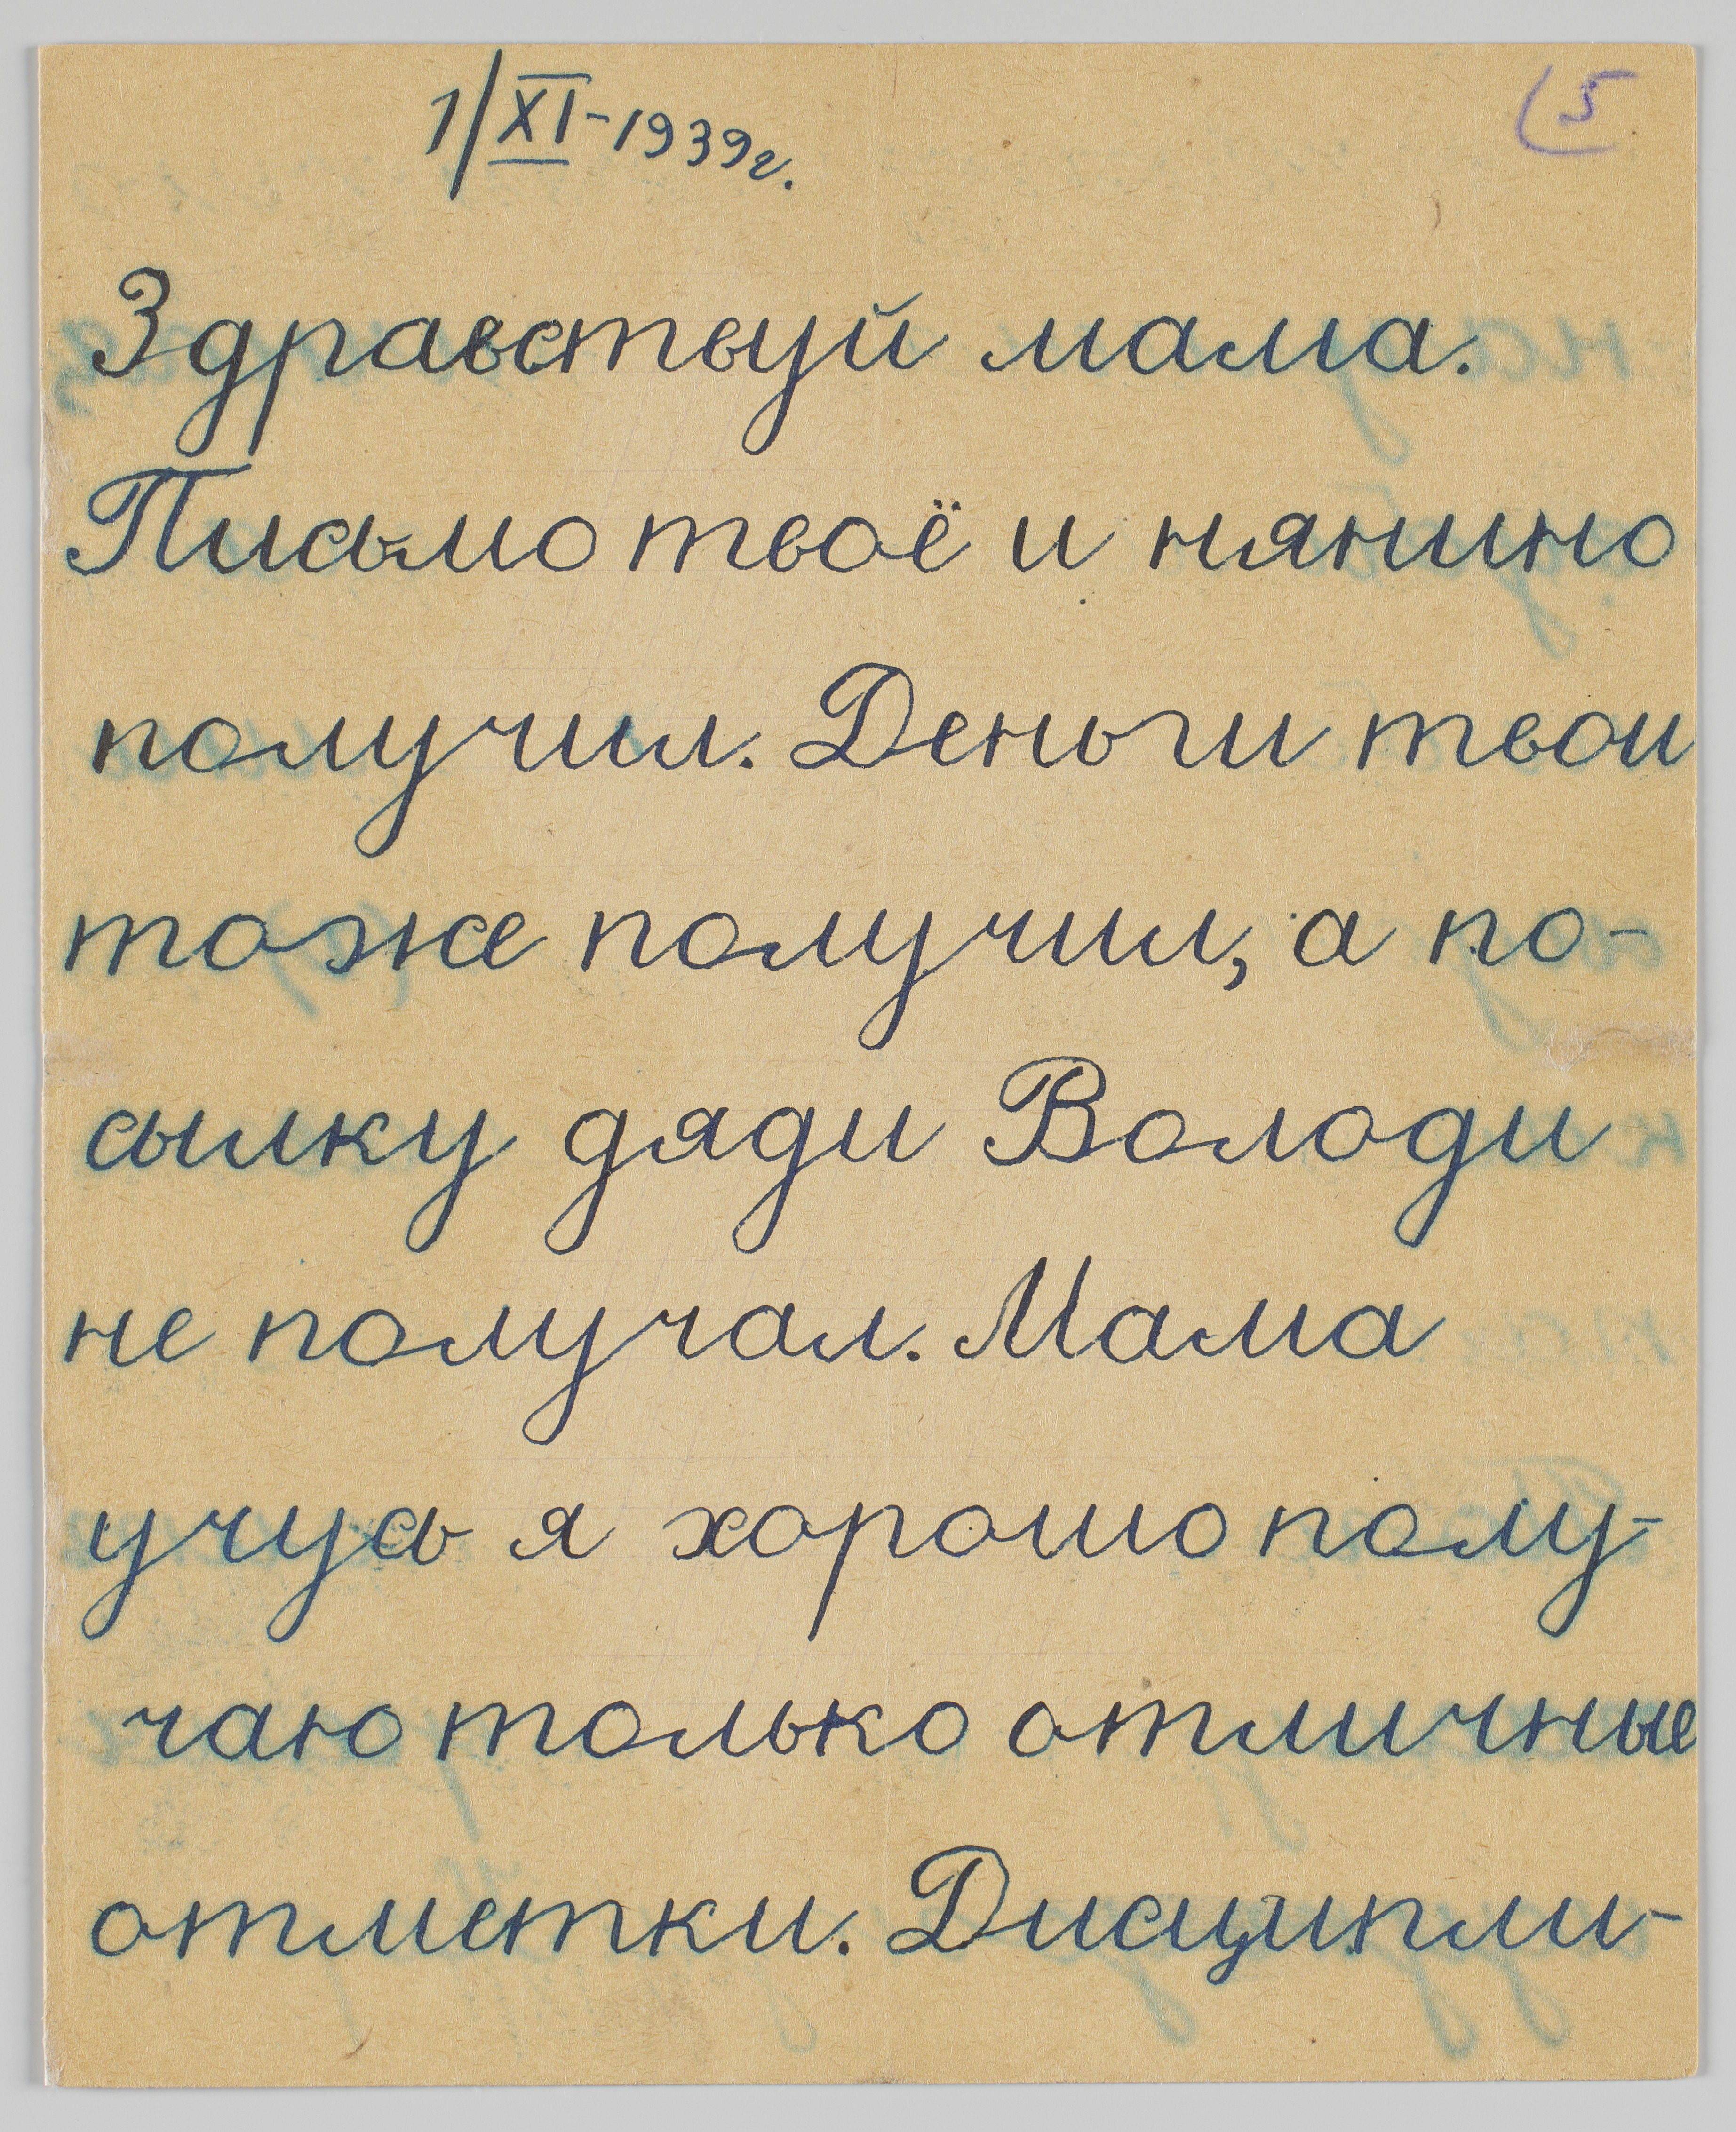 1/XI-1939г.
5
Здравствуй мама.
Письмо твоё и нянино
получил. Деньги твои
тоже получил, а по-
сылку дяди Володи
не получал. Мама
учусь я хорошо полу-
чаю только отличные
отметки. Дисципли-